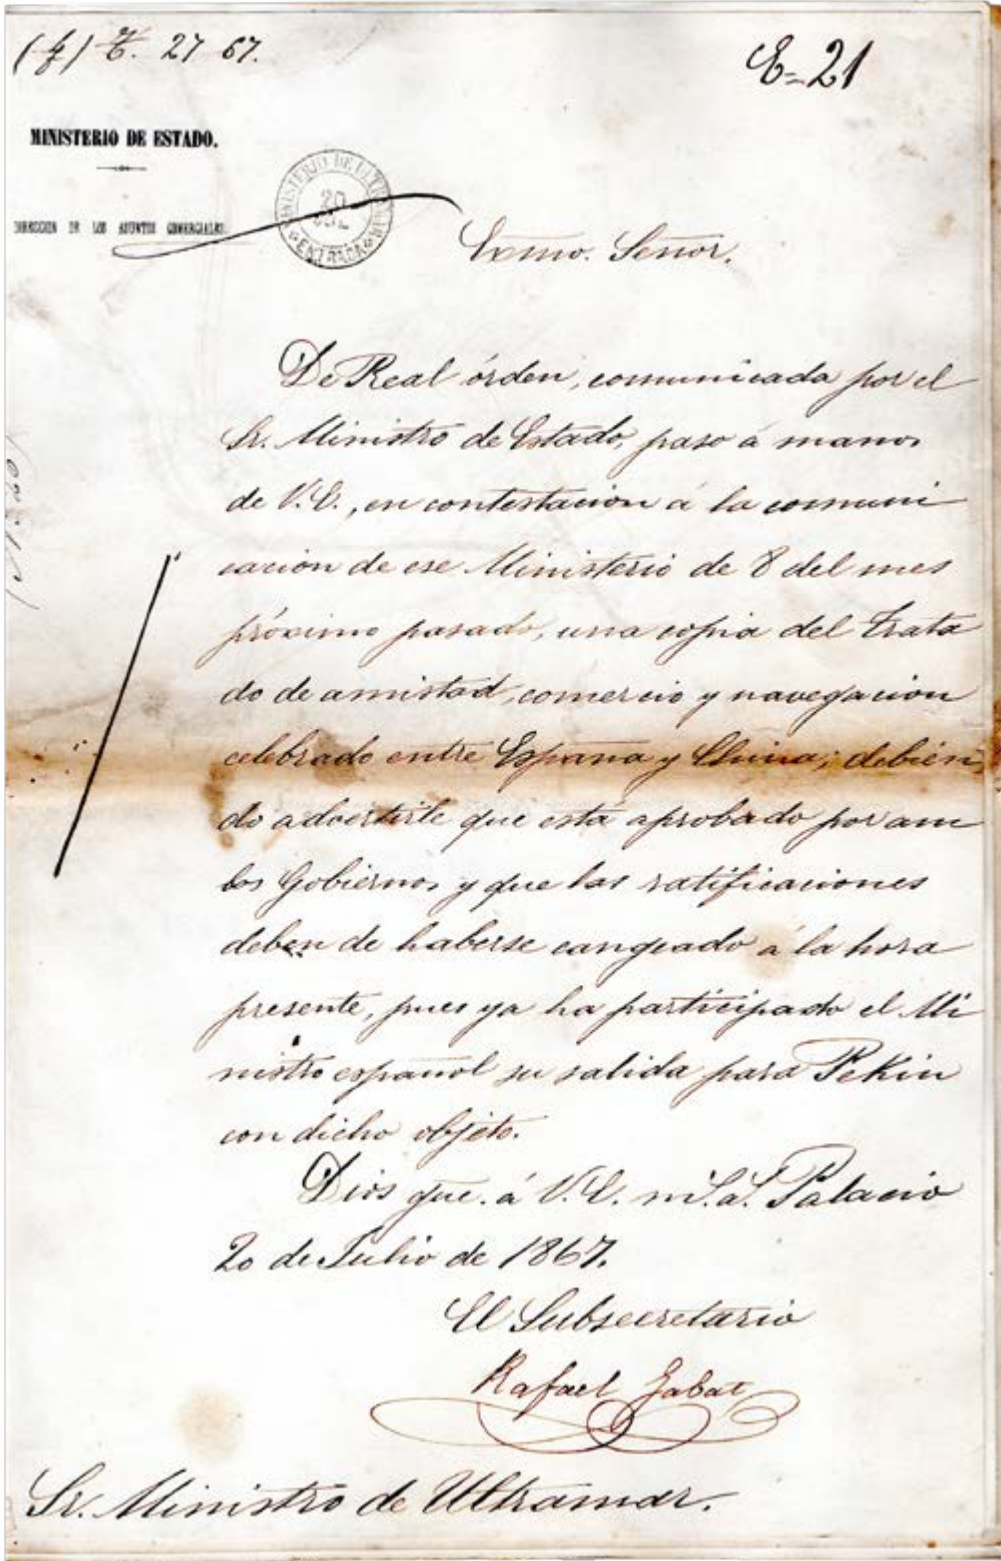 27 67.
E=21
MINISTERIO DE ESTADO.
DIRECCION DE LOS ASUNTOS COMERCIALES.
MINISTERIO DE ULTRAMAR
20
JUL
ENTRADA
Exmo. Señor.
De Real órden, comunicada por el
Sr. Ministro de Estado, paso á manos
de V.E., en contestacion á la comuni
cacion de ese Ministerio de 8 del mes
próximo pasado, una copia del Trata
do de amistad, comercio y navegacion
celebrado entre España y China; debien
do advertirle que está aprobado por am
bos Gobiernos y que las ratificaciones
deben de haberse cangeado á la hora
presente, pues ya ha participado el Mi
nistro español su salida para Pekin
con dicho objeto.
Dios gue. á V.E. m.s.a.s. Palacio
20 de Julio de 1867.
El Subsecretario
Rafael Jabat
Sr. Ministro de Ultramar.